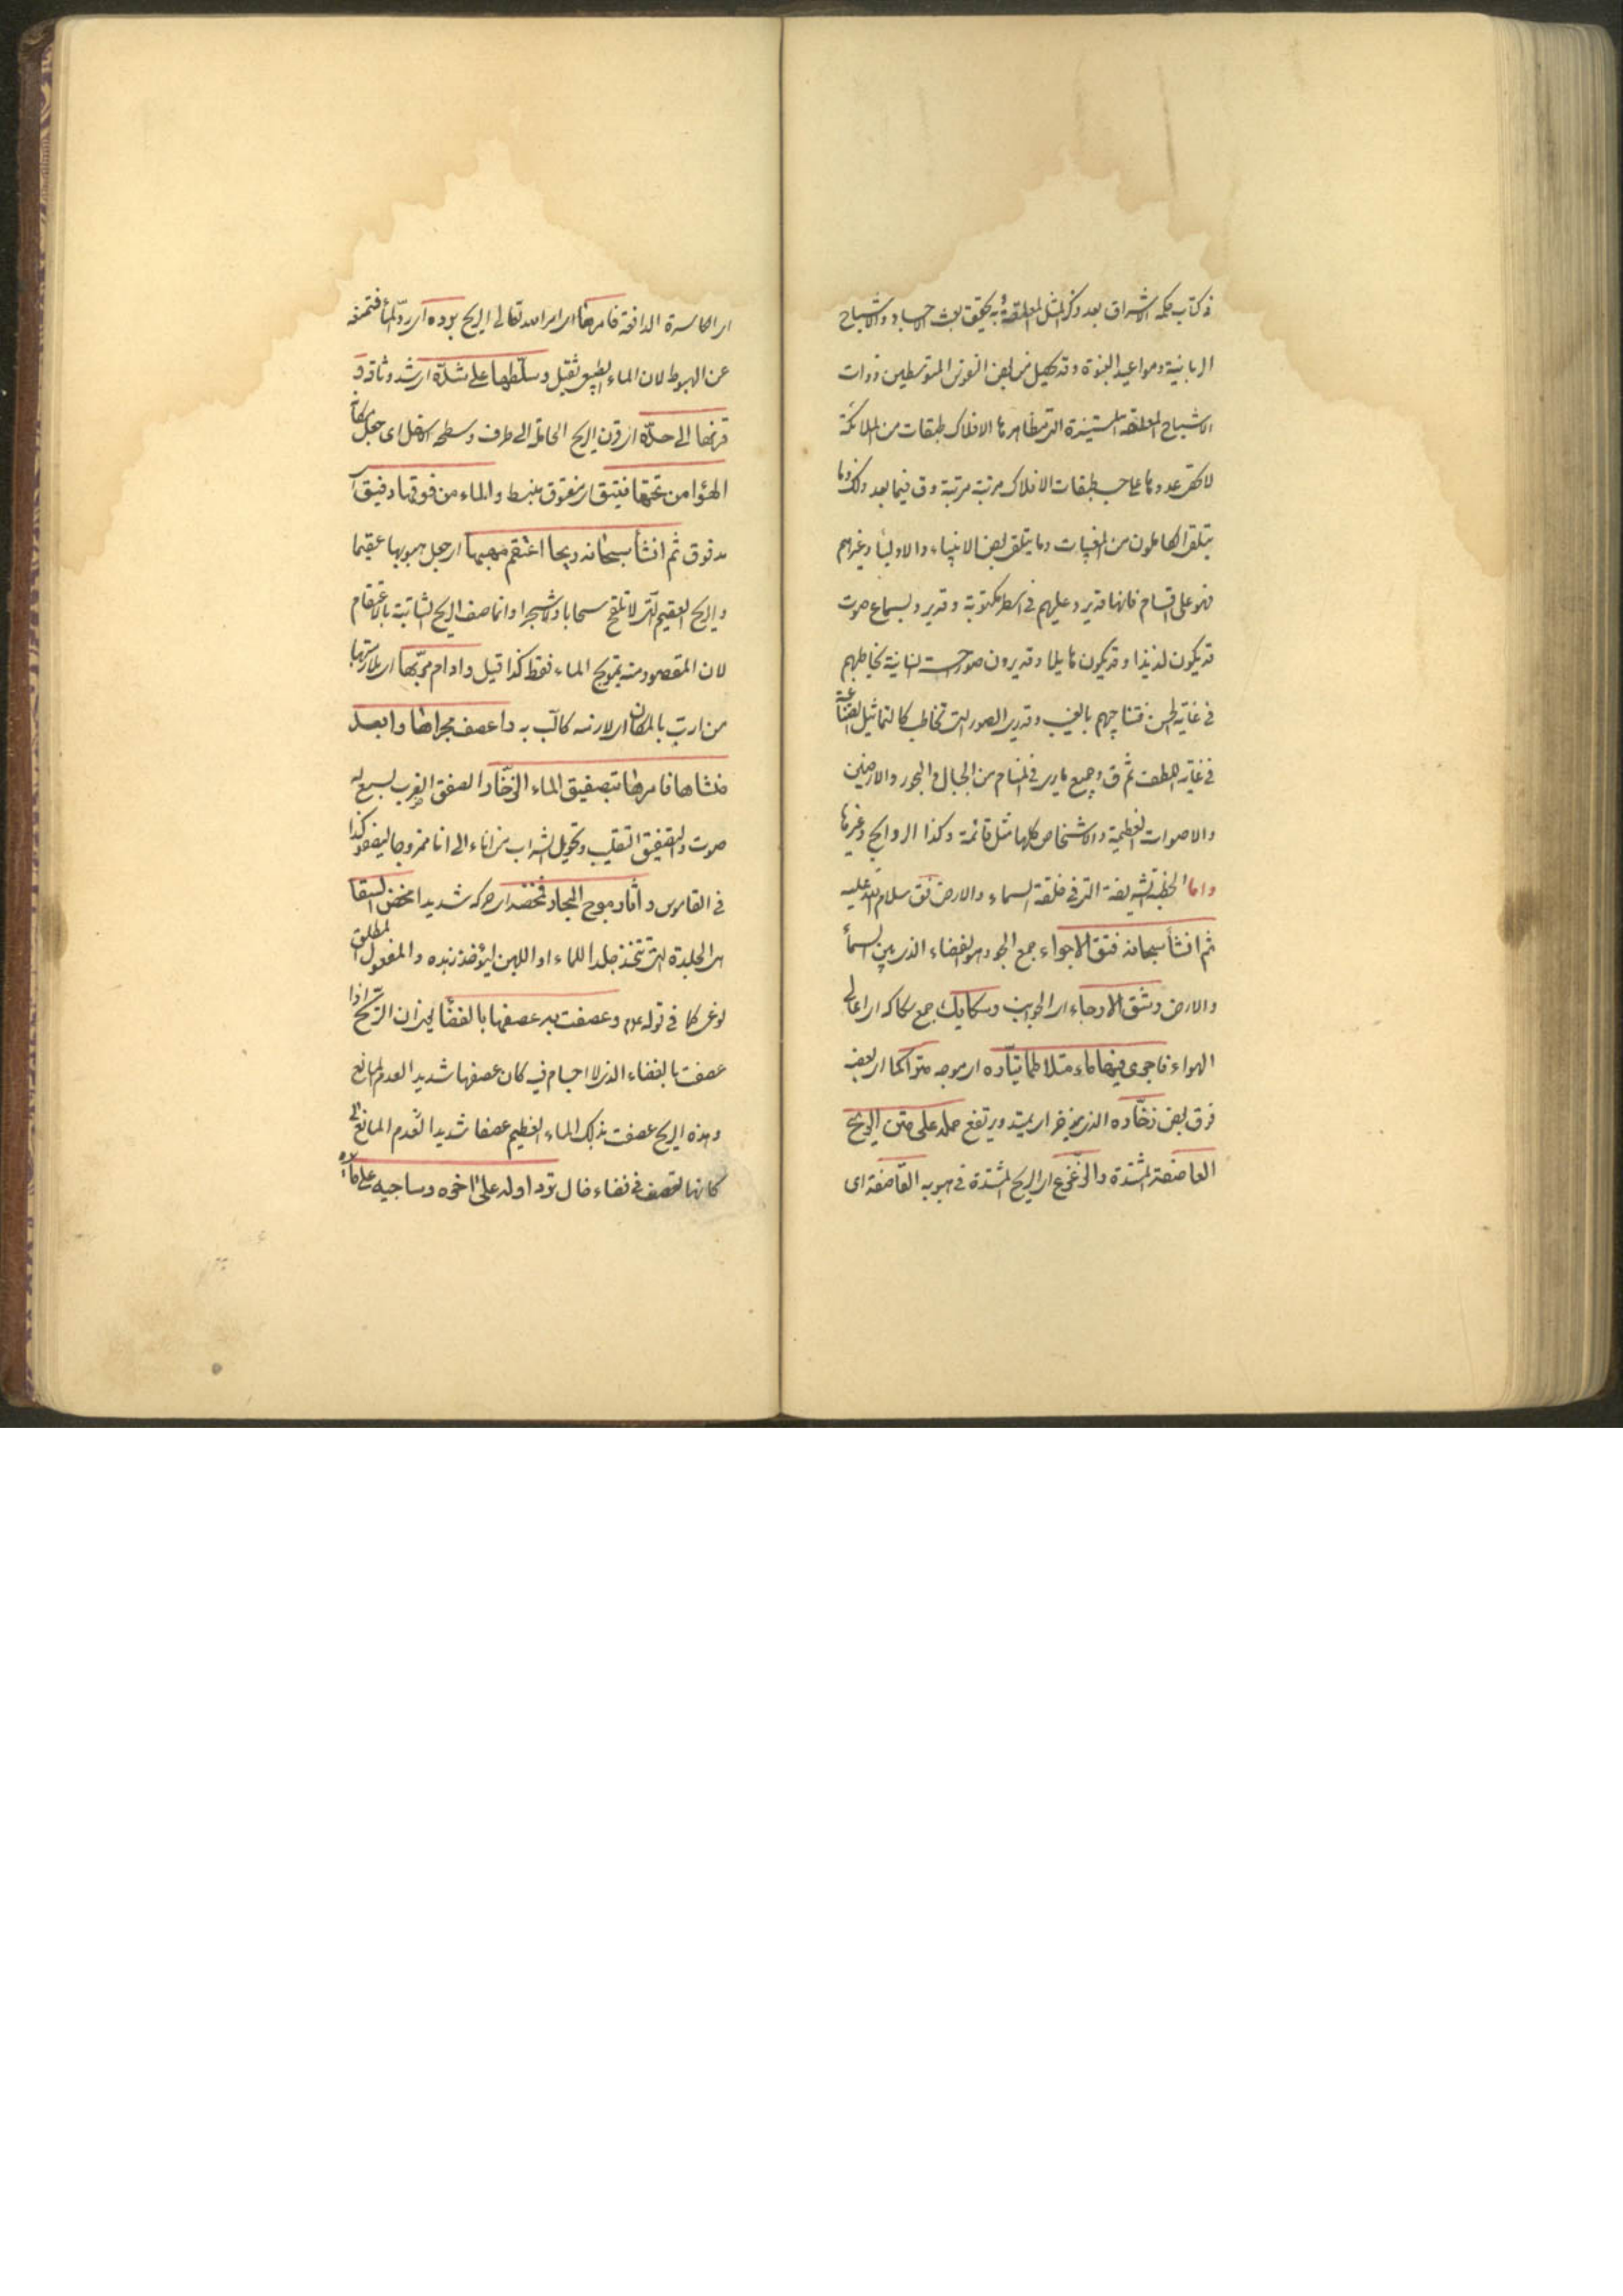 فى كتاب حكمة الاشراق بعد ذكر المثل المعلقة وبه يحقق بعث الاجساد والاشباح
الربانية ومواعيد النبوة وقد يحصل من بعض النفوس المتوسطين ذوات
الاشباح المعلقة المستنيرة التى مظاهرها الافلاك طبقات من الملائكة
لا تحصى عددها على حسب طبقات الافلاك مرتبة مرتبة وق فيما بعد ذلك وما
يتلقى الكاملون من المغيبات وما يتلقى بعض الانبياء والاولياء وغيرهم
فهو على اقسام فانها قد يرد عليهم فى اسطر مكتوبة وقد يرد بسماع صوت
قد يكون لذيذا وقد يكون هايلا وقد يرون صور حسنة انسانية تخاطبهم
فى غاية الحسن فتناجيهم بالغيب وقد يرى الصور التى تخاطب كالتماثيل الصناعية
فى غاية اللطف ثم ق وجميع ما يرى فى المنام من الجبال والبحور والارضين
والاصوات العظيمة والاشخاص كلها مثل قائمة وكذا الروايح وغيرها
واما الخطبة الشريفة التى فى خلقة السماء والارض فق سلام الله عليه
ثم انشأ سبحانه فتق الاجواء جمع الجو وهو الفضاء الذى بين السمأ
والارض وشق الارجاء اى الجوانب وسكايك جمع سكاكه اى اعالى
الهواء فاجرى فيها ماء متلاطما تياره اى موجه متراكما اى بعضه
فوق بعض زخاره الذى يزخر اى يمتد ويرتفع حمله على متن الريح
العاصفة المشتدة والزعزع اى الريح المشتدة فى هبوبه القاصفة اى
اى الكاسرة الدافعة فامرها اى امر الله تعالى الريح برده اى رد الماء فتمنعه
عن الهبوط لان الماء بالطبع ثقيل وسلطها على شده اى شد وثاقه و
قرنها الى حده اى قرن الريح الحاملة الى طرف وسطحه الاسفل اى جعل مكانه
الهوا من تحتها فتيق اى مفتوق منبسط والماء من فوقها دفيق اى
مدفوق ثم انشأ سبحانه ريحا اعتقم مهبها اى جعل هبوبها عقيما
والريح العقيم التى لا تلقح سحابا ولا شجرا وانما صف الريح الثانية بالاعتقام
لان المقصود منه تموج الماء فقط كذا قيل وادام مربها اى ملازمتها
من ارب بالمكان اى لازمه كالب به واعصف مجراها وابعد
منشاها فامرها بتصفيق الماء الزخار الصفق الضرب يسمع له
صوت والتصفيق التقليب وتحويل الشراب من اناء الى انا ممزوجا ليصفو كذا
فى القاموس واثار موج البحار فمخضه اى حركه شديدا مخض السقا
هى الجلدة التى تتخذ جلدا للماء او اللبن ليؤخذ زبده والمفعول المطلق
كما فى قوله عم وعصفت به عصفها بالفضا لان الريح اذا
عصفت بالفضاء الذى لا اجسام فيه كان عصفها شديدا لعدم المانع
وهذه الريح عصفت بذلك الماء العظيم عصفا شديدا لعدم المانع
كانها تعصف فى فضاء خال ترد اوله على اخره وساجيه على مائره